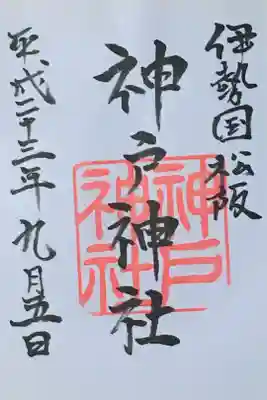 伊勢国松阪
神戸神社
神戸
神社
平成二十三年九月五日